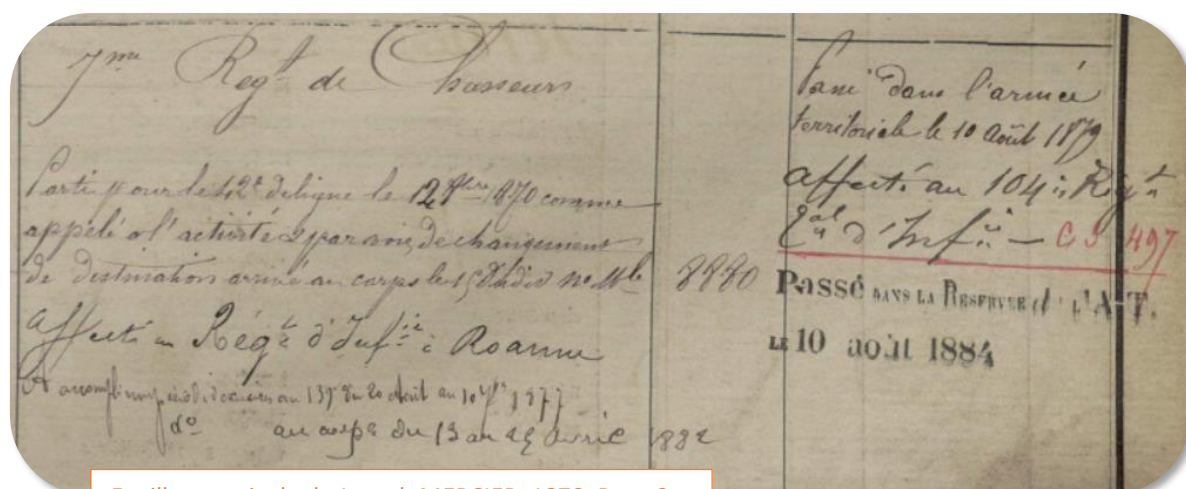 7me Regt de Chasseurs
Parti pour le 42e de ligne le 12 8bre 1870 comme
appelé à l'activité par voie de changement
de destination arrivé au corps le 15 dudit no Mle 8880
Affecté au Régt d'Infie à Roanne
A accompli une période d'exercices au 139e du 20 août au 1877
do au corps du 13 au 25 avril 1882
Passé dans l'armée
territoriale le 10 août 1879
Affecté au 104e Régt
tal d'Infie — 497
Passé DANS LA RÉSERVE de l'A.T.
LE 10 août 1884